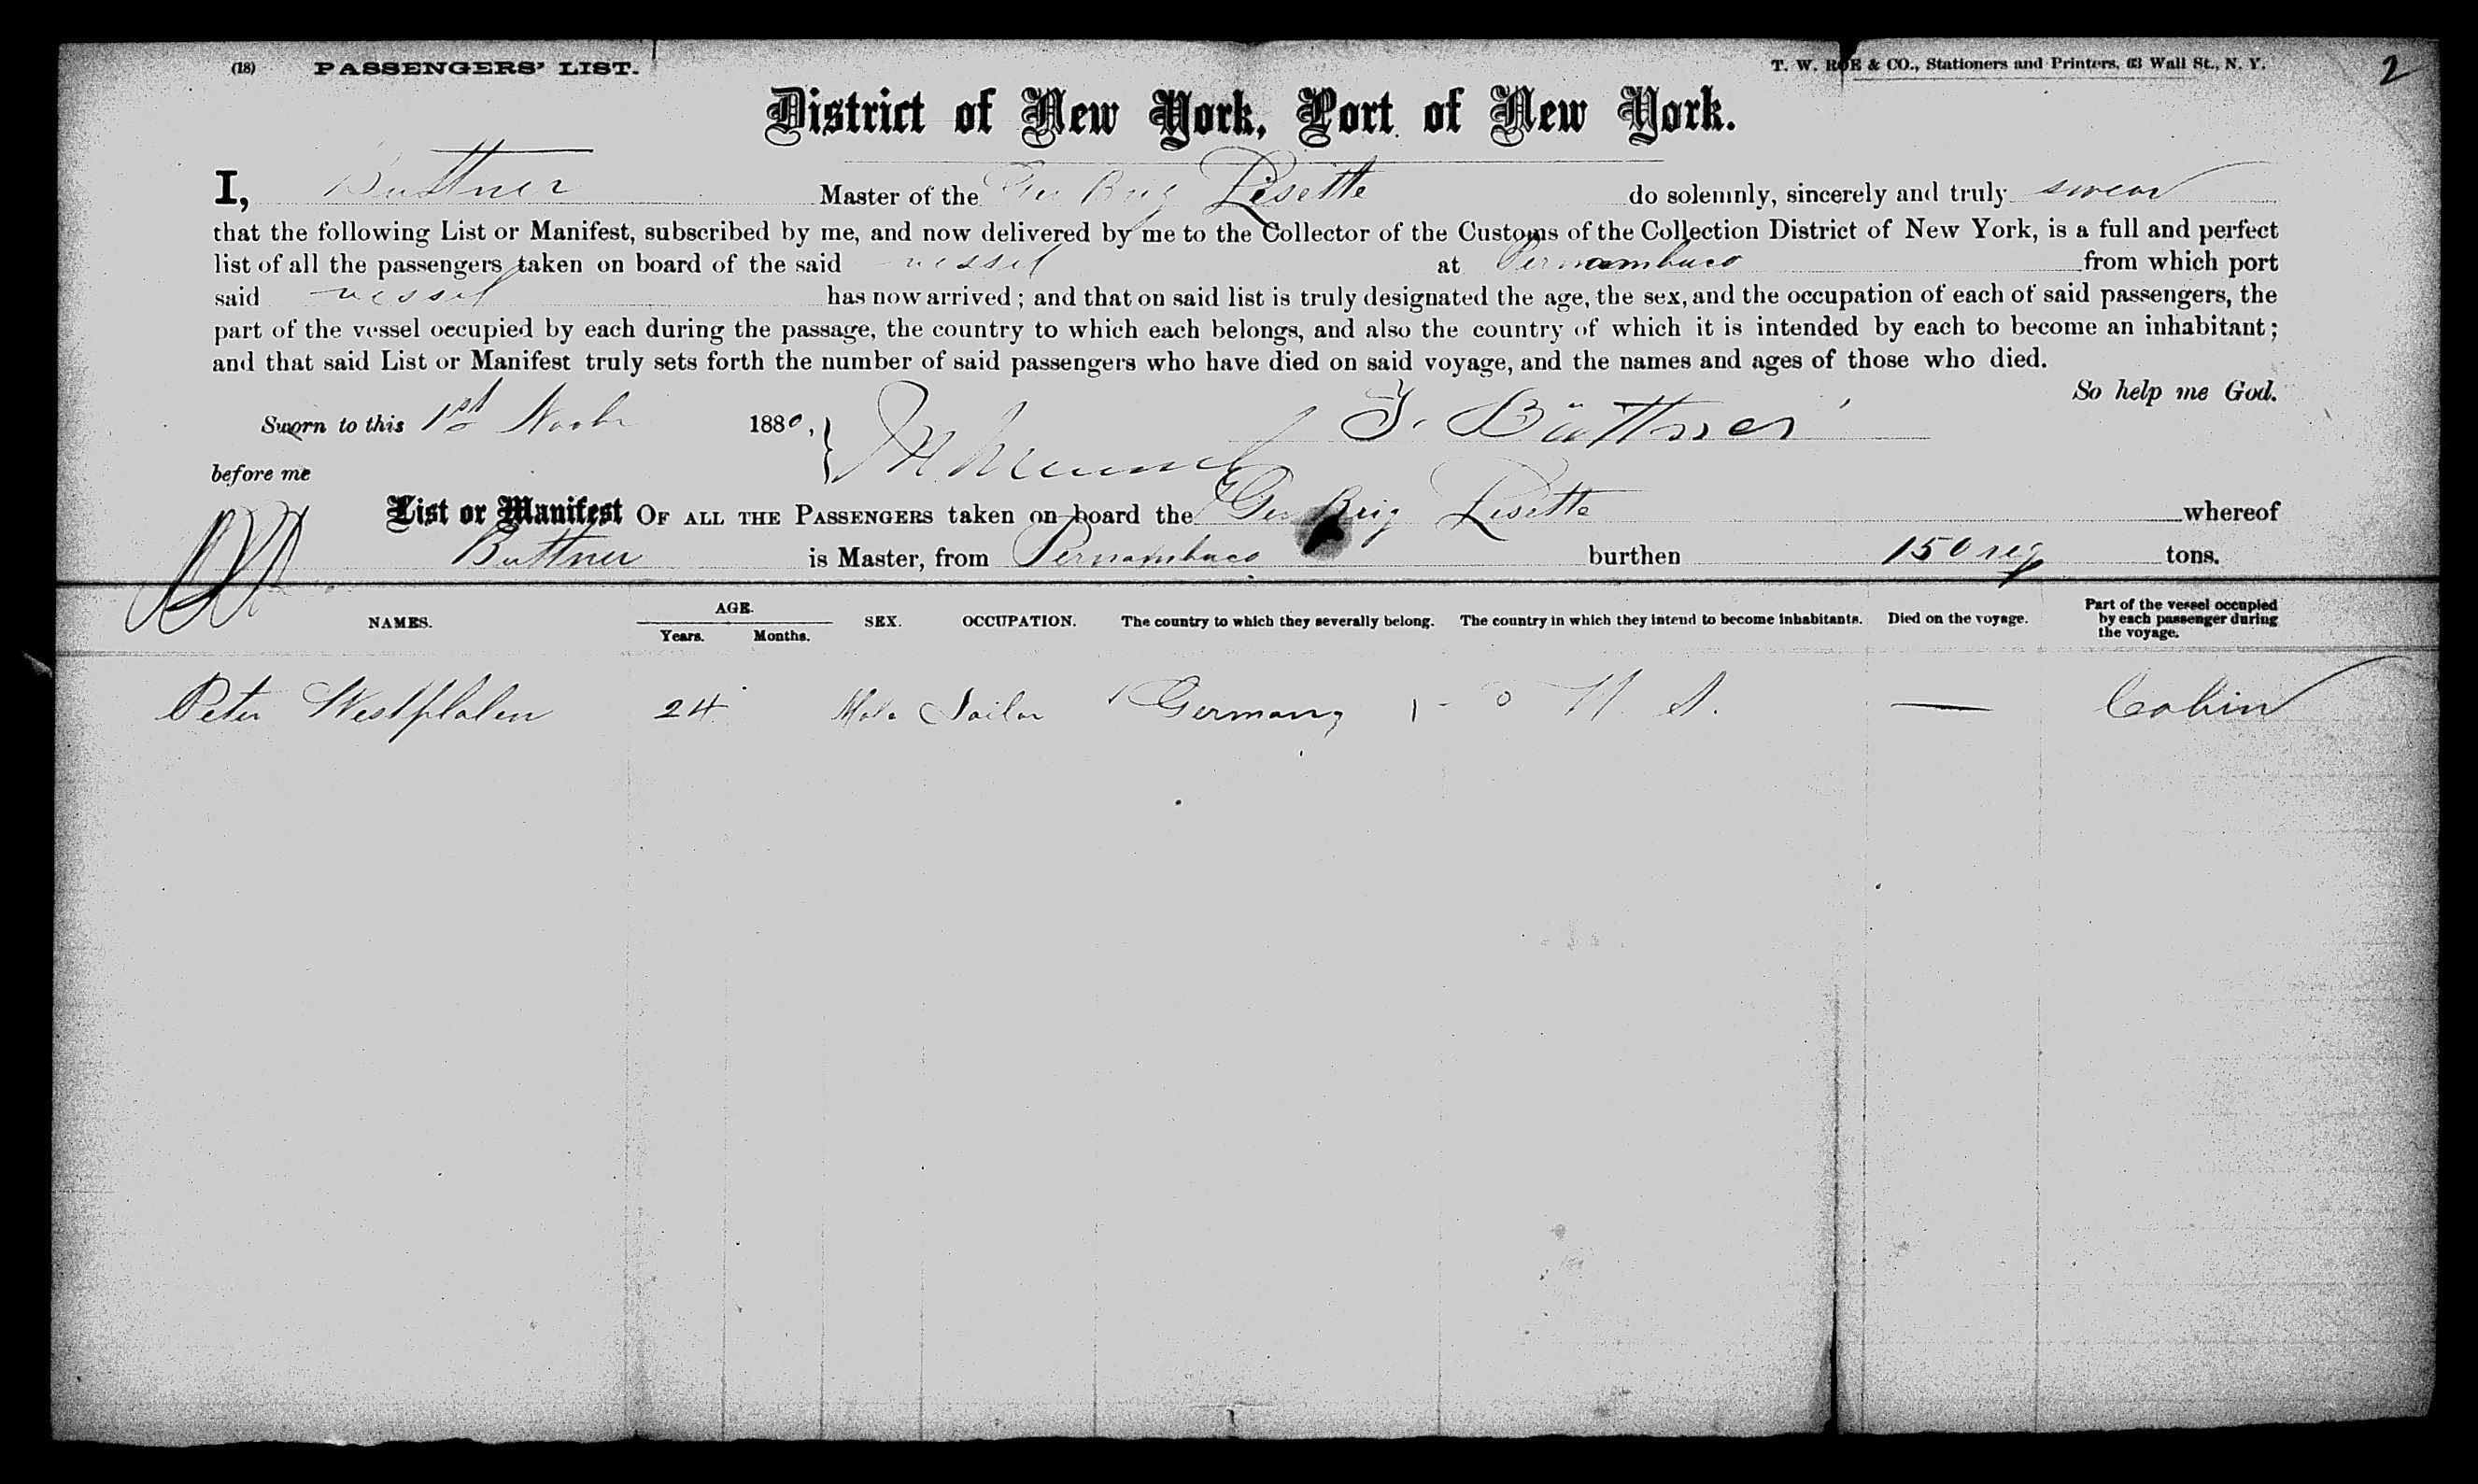 (18) PASSENGERS' LIST. T. W. ROE & CO., Stationers and Printers, 63 Wall St., N. Y. 2
District of New York, Port of New York.
I, Buttner Master of the Ger Brig Lisette do solemnly, sincerely and truly swear
that the following List or Manifest, subscribed by me, and now delivered by me to the Collector of the Customs of the Collection District of New York, is a full and perfect
list of all the passengers taken on board of the said vessel at Pernambuco from which port
said vessel has now arrived; and that on said list is truly designated the age, the sex, and the occupation of each of said passengers, the
part of the vessel occupied by each during the passage, the country to which each belongs, and also the country of which it is intended by each to become an inhabitant;
and that said List or Manifest truly sets forth the number of said passengers who have died on said voyage, and the names and ages of those who died.
So help me God.
Sworn to this 1st Novbr 1880, J. Büttner
before me
List or Manifest OF ALL THE PASSENGERS taken on board the Ger Brig Lisette whereof
Buttner is Master, from Pernambuco burthen 150 reg tons.
NAMES. AGE. Years. Months. SEX. OCCUPATION. The country to which they severally belong. The country in which they intend to become inhabitants. Died on the voyage. Part of the vessel occupied by each passenger during the voyage.
Peter Westphalen 24 Male Sailor Germany U. S. — Cabin